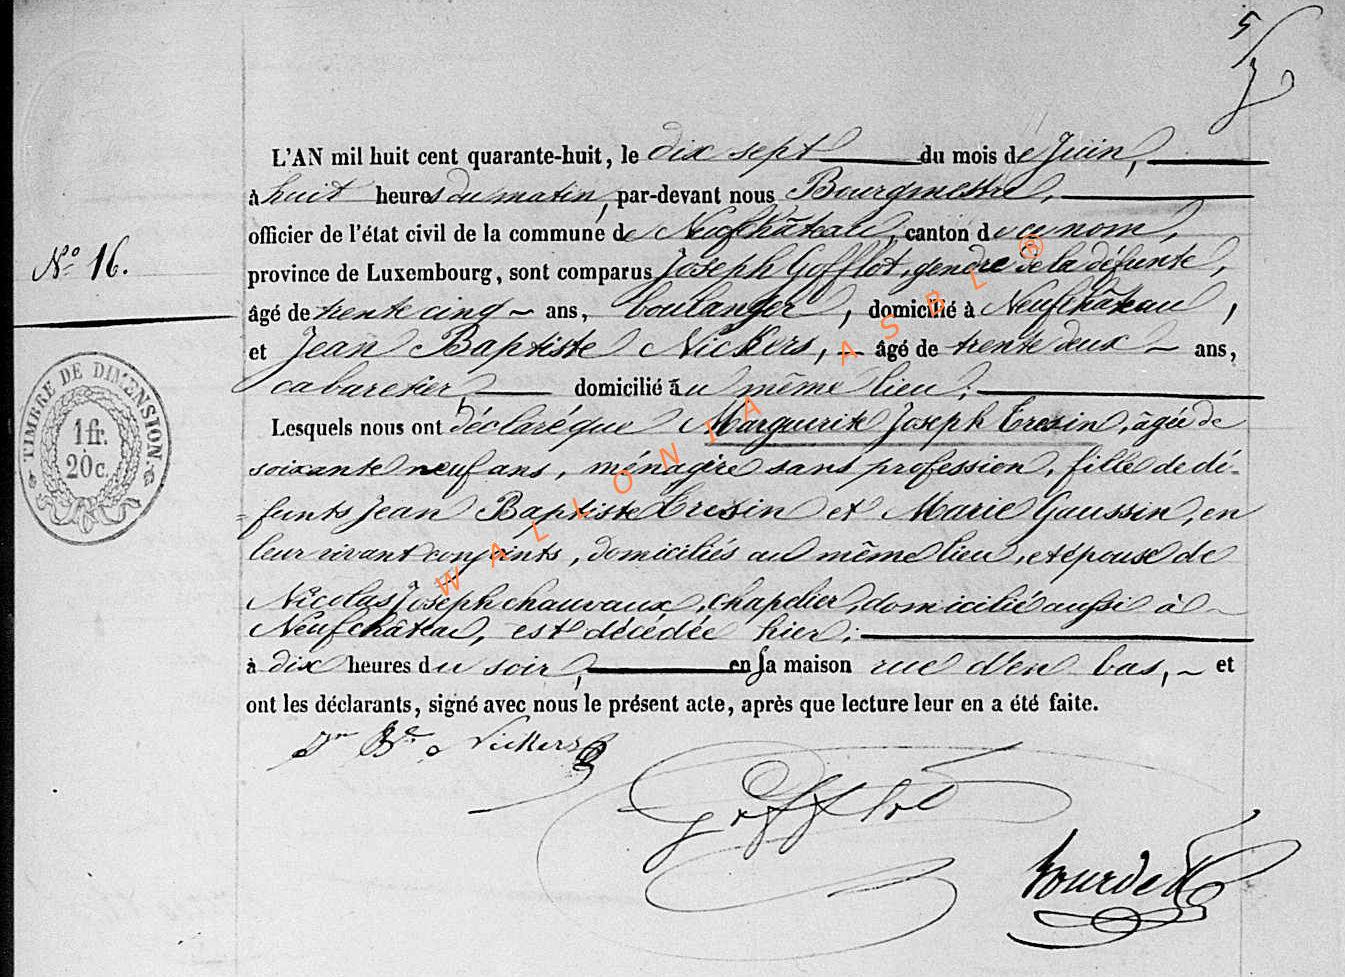 5/7
L'AN mil huit cent quarante-huit, le dix sept du mois de Juin,
à huit heures du matin, par-devant nous Bourgmestre,
officier de l'état civil de la commune de Neufchâteau, canton de ce nom,
N° 16.
province de Luxembourg, sont comparus Joseph Gofflot, gendre de la défunte,
âgé de trente cinq ~ ans, boulanger, domicilié à Neufchâteau,
et Jean Baptiste Nickers, — âgé de trente deux — ans,
cabaretier, domicilié au même lieu;
TIMBRE DE DIMENSION
1 fr.
20 c.
Lesquels nous ont déclaré que Marguerite Joseph Tresin, âgée de
soixante neuf ans, ménagère sans profession, fille de dé-
-funts Jean Baptiste Tresin et Marie Gaussin, en
leur vivant conjoints, domiciliés au même lieu, et épouse de
Nicolas Joseph chauvaux, chapelier, domicilié aussi à
Neufchâteau, est décédée hier;
à dix heures du soir, en sa maison rue d'en bas, ~ et
ont les déclarants, signé avec nous le présent acte, après que lecture leur en a été faite.
Jn Bte Nickers
Gofflot
Bourdet
WALLONIA ASBL ®